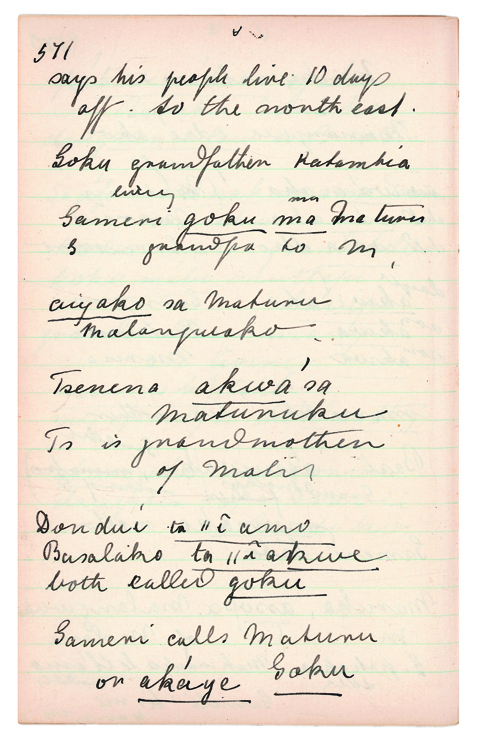 571
says his people live 10 days
off to the north east.
Goku grandfather Katambia
Gameri goku ma Maturu
G grandpa to M,
aiyako sa Maturu
Malanguako
Tsenena akwá sa
Maturuku
Ts is grandmother
of Mali
Dondué ta ||î amo
Basaláko ta ||î akwe
both called goku
Gameri calls Maturu
or akáye Goku